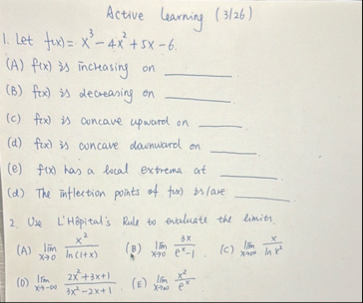 Active Learning (3/26)
1. Let f(x) = x³ - 4x² + 5x - 6.
(A) f(x) is increasing on ____
(B) f(x) is decreasing on ____
(c) f(x) is concave upward on ____
(d) f(x) is concave downward on ____
(e) f(x) has a local extrema at ____
(d) The inflection points of f(x) is/are ____
2. Use L'Hôpital's Rule to evaluate the limits
(A) lim x→0 x²/ln(1+x) (B) lim x→0 3x/(eˣ-1) (C) lim x→∞ x/ln x²
(D) lim x→-∞ (2x²+3x+1)/(3x²-2x+1) (E) lim x→∞ x²/eˣ